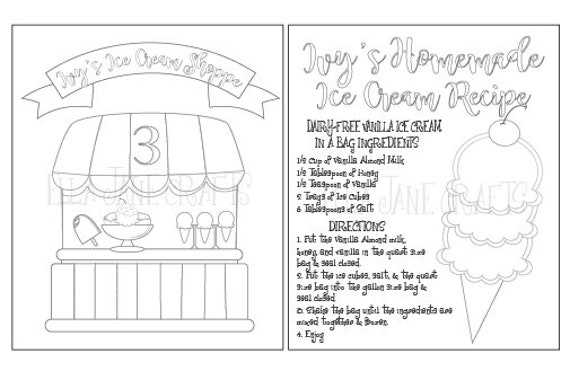 Ivy's Ice Cream Shoppe
3
ELLA JANE CRAFTS
Ivy's Homemade
Ice Cream Recipe
DAIRY-FREE VANILLA ICE CREAM
IN A BAG INGREDIENTS
1/2 Cup of Vanilla Almond Milk
1/2 Tablespoon of Honey
1/2 Teaspoon of Vanilla
2 Trays of Ice Cubes
6 Tablespoons of Salt
JANE CRAFTS
DIRECTIONS
1. Put the vanilla almond milk,
honey, and vanilla in the quart size
bag & seal closed.
2. Put the ice cubes, salt, & the quart
size bag into the gallon size bag &
seal closed.
3. Shake the bag until the ingredients are
mixed together & frozen.
4. Enjoy